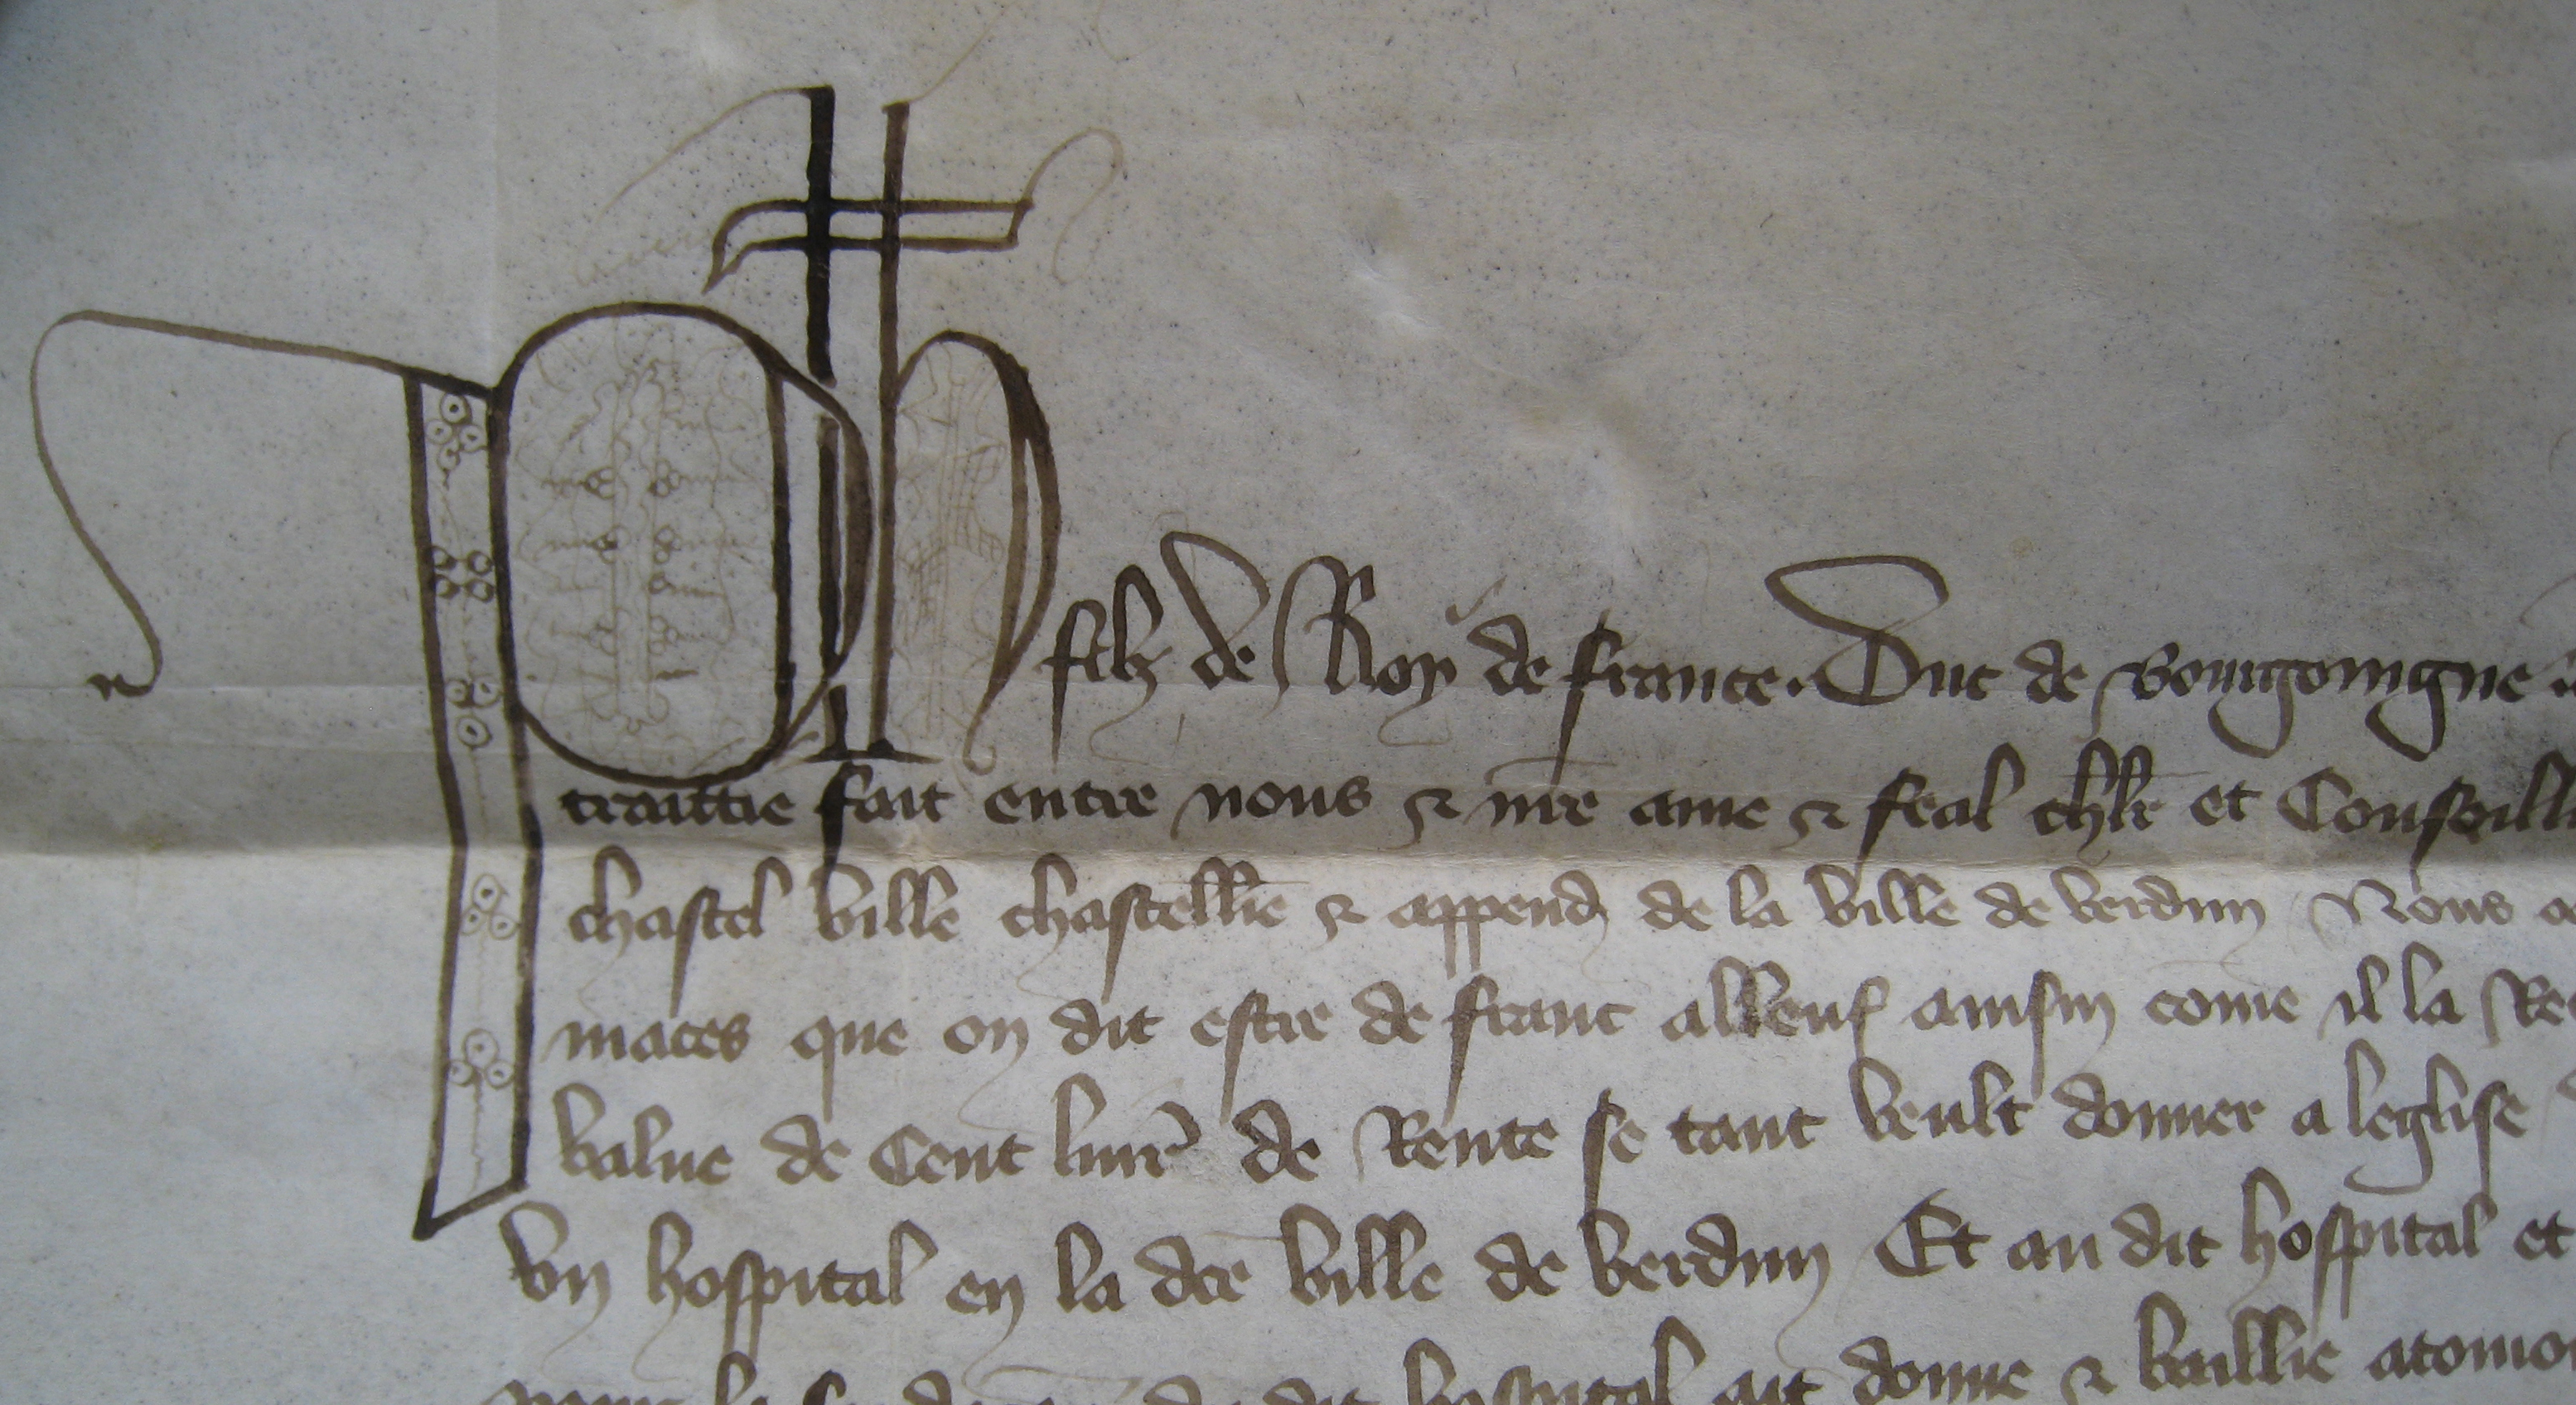 Ph filz de Roy de france. Duc de Bourgoingne
traittie fait entre nous & nre ame & feal chlr et Conseill
chastel ville chastellie & append de la ville de verdun Nous
maces que on dit estre de franc alleuf ainsin come il la Re
value de Cent livr de Rente se tant veult donner a leglise
un hospital en la dce ville de verdun Et au dit hospital et
dit hospital ait donne & baillie